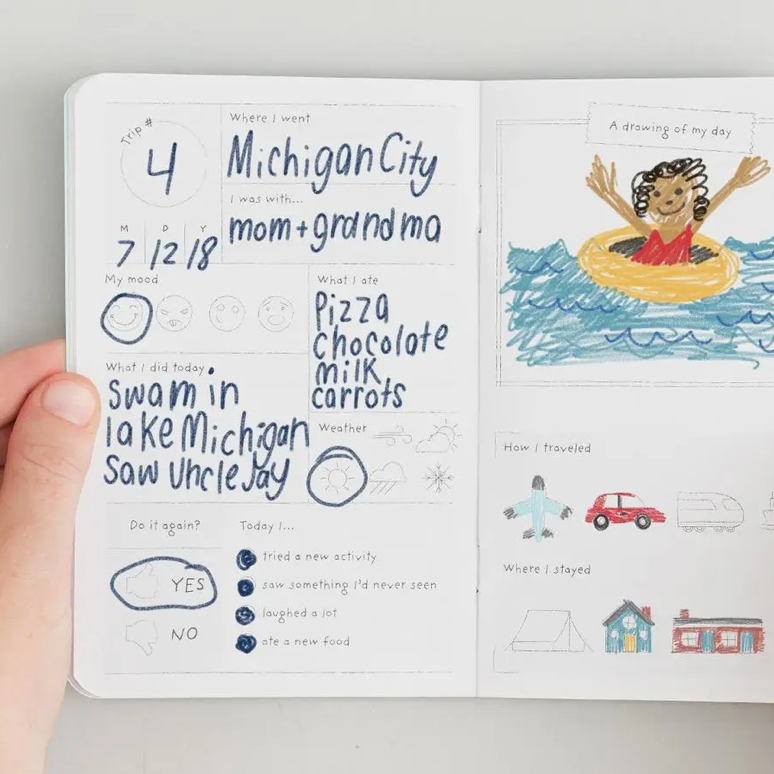 Trip #
4
Where I went
Michigan City
I was with...
mom + grandma
M D Y
7 12 18
My mood
What I ate
Pizza
chocolate
milk
carrots
What I did today
swam in
lake Michigan
saw Uncle Jay
Weather
Do it again?
YES
NO
Today I...
tried a new activity
saw something I'd never seen
laughed a lot
ate a new food
A drawing of my day
How I traveled
Where I stayed